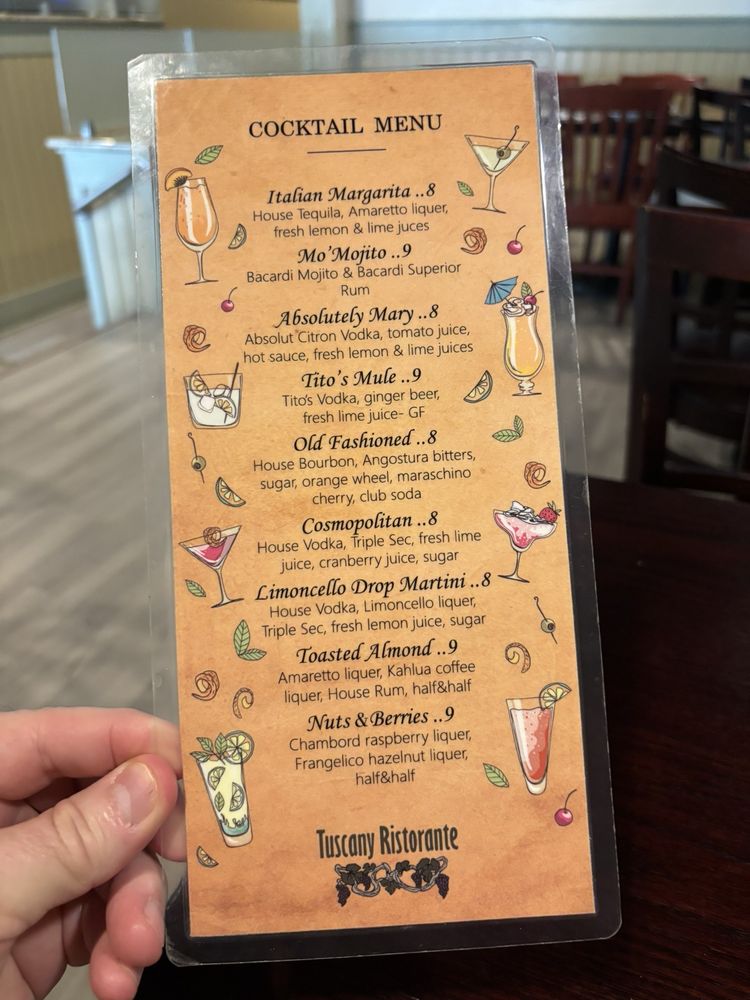 COCKTAIL MENU
Italian Margarita ..8
House Tequila, Amaretto liquer,
fresh lemon & lime juces
Mo'Mojito ..9
Bacardi Mojito & Bacardi Superior
Rum
Absolutely Mary ..8
Absolut Citron Vodka, tomato juice,
hot sauce, fresh lemon & lime juices
Tito's Mule ..9
Tito's Vodka, ginger beer,
fresh lime juice- GF
Old Fashioned ..8
House Bourbon, Angostura bitters,
sugar, orange wheel, maraschino
cherry, club soda
Cosmopolitan ..8
House Vodka, Triple Sec, fresh lime
juice, cranberry juice, sugar
Limoncello Drop Martini ..8
House Vodka, Limoncello liquer,
Triple Sec, fresh lemon juice, sugar
Toasted Almond ..9
Amaretto liquer, Kahlua coffee
liquer, House Rum, half&half
Nuts & Berries ..9
Chambord raspberry liquer,
Frangelico hazelnut liquer,
half&half
Tuscany Ristorante